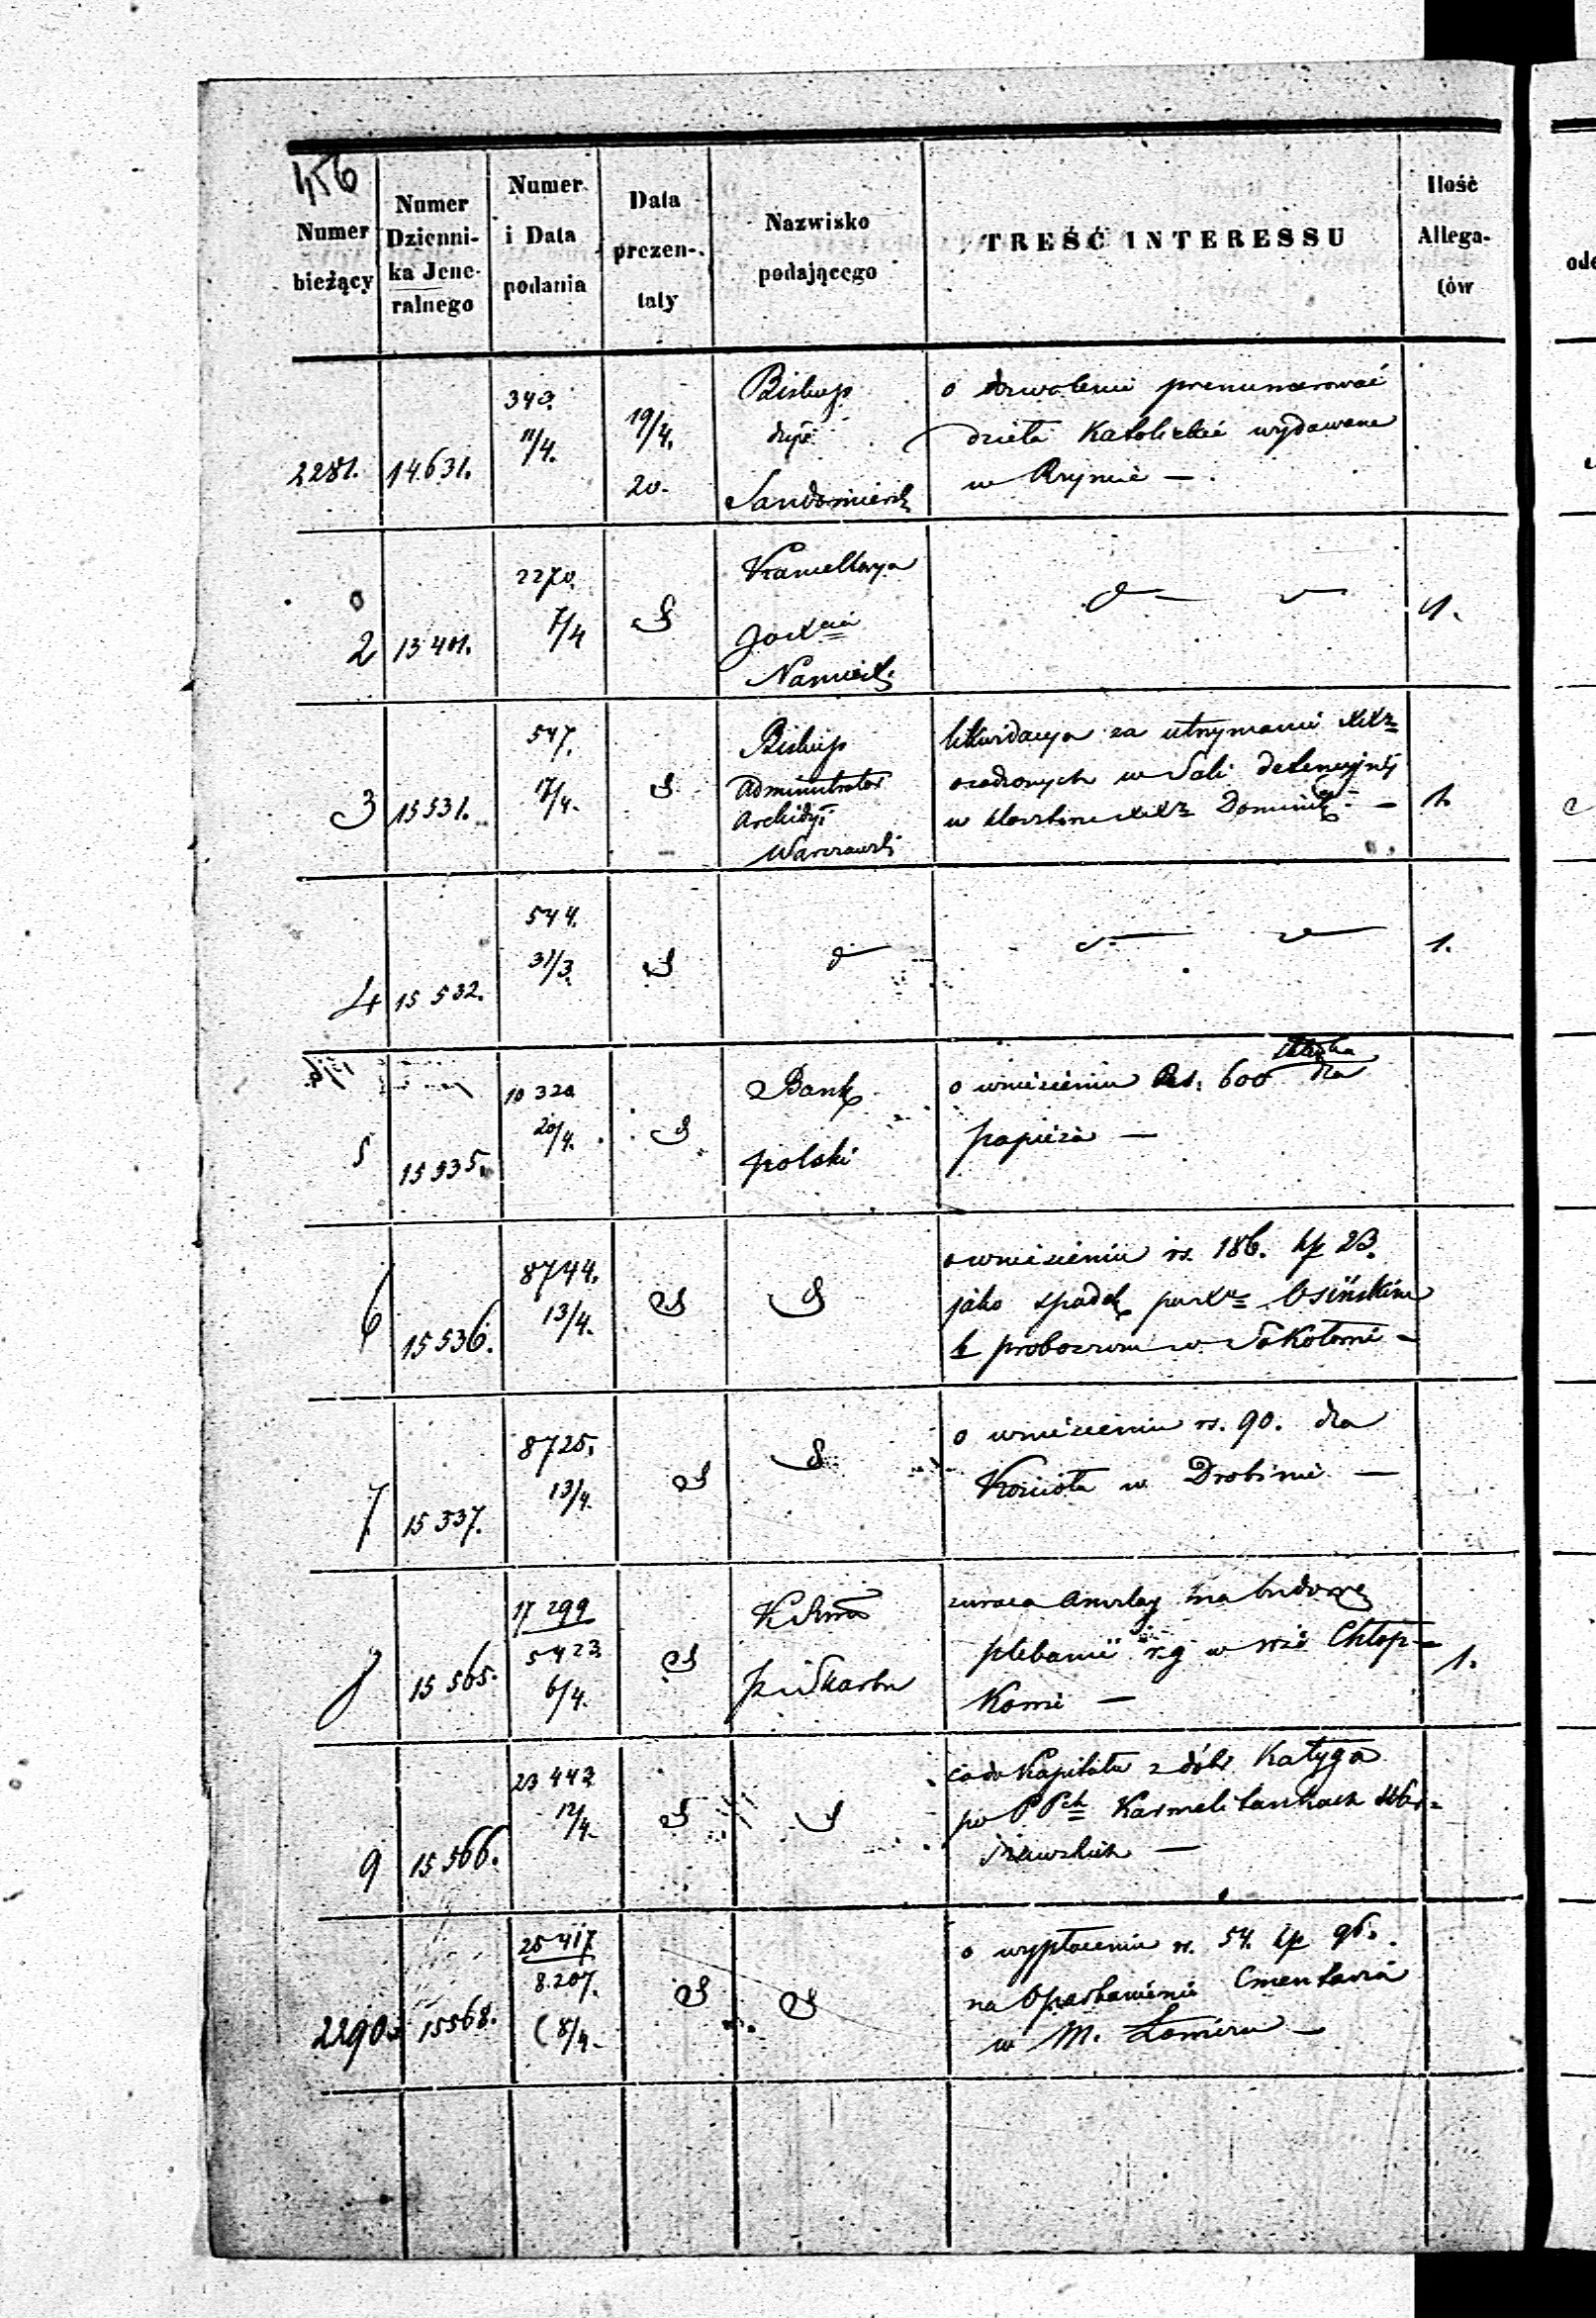 456
Numer
bieżący
Numer
Dzienni-
ka Jene-
ralnego
Numer
i Data
podania
Data
prezen-
taty
Nazwisko
podającego
TREŚĆ INTERESSU
Ilość
Allega-
tów
2281. 14631.
340.
11/4.
19/4.
20.
Biskup
dyec
Sandomiersk
o dozwolenie prenumerować
dzieła Katolickie wydawane
w Rzymie —
2 13401.
2270.
7/4
Kancellarya
Namiest.
1.
3 15531.
547.
17/4.
Biskup
Administrator
Archidyec
Warszawski
likwidacya za utrzymanie XXz
osadzonych w Sali detencyjnej
w klasztorze XXz Dominik —
1.
4 15532.
544.
31/3.
1.
5 15535.
10320
20/4.
Bank
polski
o wniesieniu Rs. 600 dla
papieża —
6 15536.
8744.
13/4.
o wniesieniu rs. 186. kp 23.
jako spadek po Xu Osińskim
b proboszczu w Sokołowie —
7 15537.
8725.
13/4.
o wniesieniu rs. 90. dla
Kościoła w Drobinie —
8 15565.
17299
5423
6/4.
K R
P i Skarbu
zwraca Anszlag na budowę
plebanii r.g w wsi Chłop=
Kowie —
1.
9 15566.
23443
12/4.
co do Kapitału z dóbr Kałyga
po PPch Karmelitankach War=
szawskich —
2290. 15568.
25417
8.207.
(8/4.
o wypłacenie rs. 54. kp 96.
na Oparkanienie Cmentarza
w M. Łomżu —